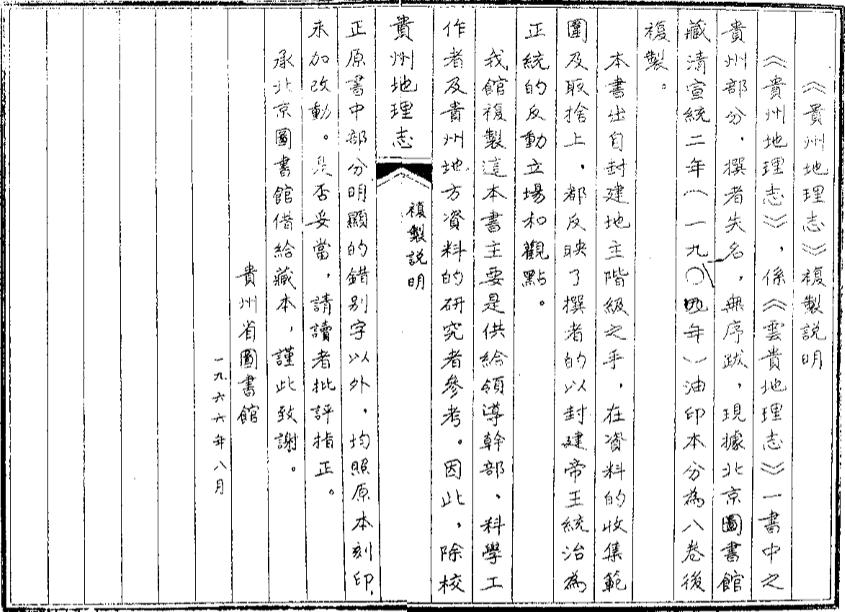 《貴州地理志》複製説明
《貴州地理志》，係《雲貴地理志》一書中之
貴州部分，撰者失名，無序跋，現據北京圖書館
藏清宣統二年（一九〇四年）油印本分為八卷後
複製。
本書出自封建地主階級之手，在資料的收集範
圍及取捨上，都反映了撰者的以封建帝王統治為
正統的反動立場和觀點。
我館複製這本書主要是供給領導幹部、科學工
作者及貴州地方資料的研究者參考。因此，除校
貴州地理志
複製説明
正原書中部分明顯的錯别字以外，均照原本刻印，
未加改動。是否妥當，請讀者批評指正。
承北京圖書館借給藏本，謹此致謝。
貴州省圖書館
一九六六年八月